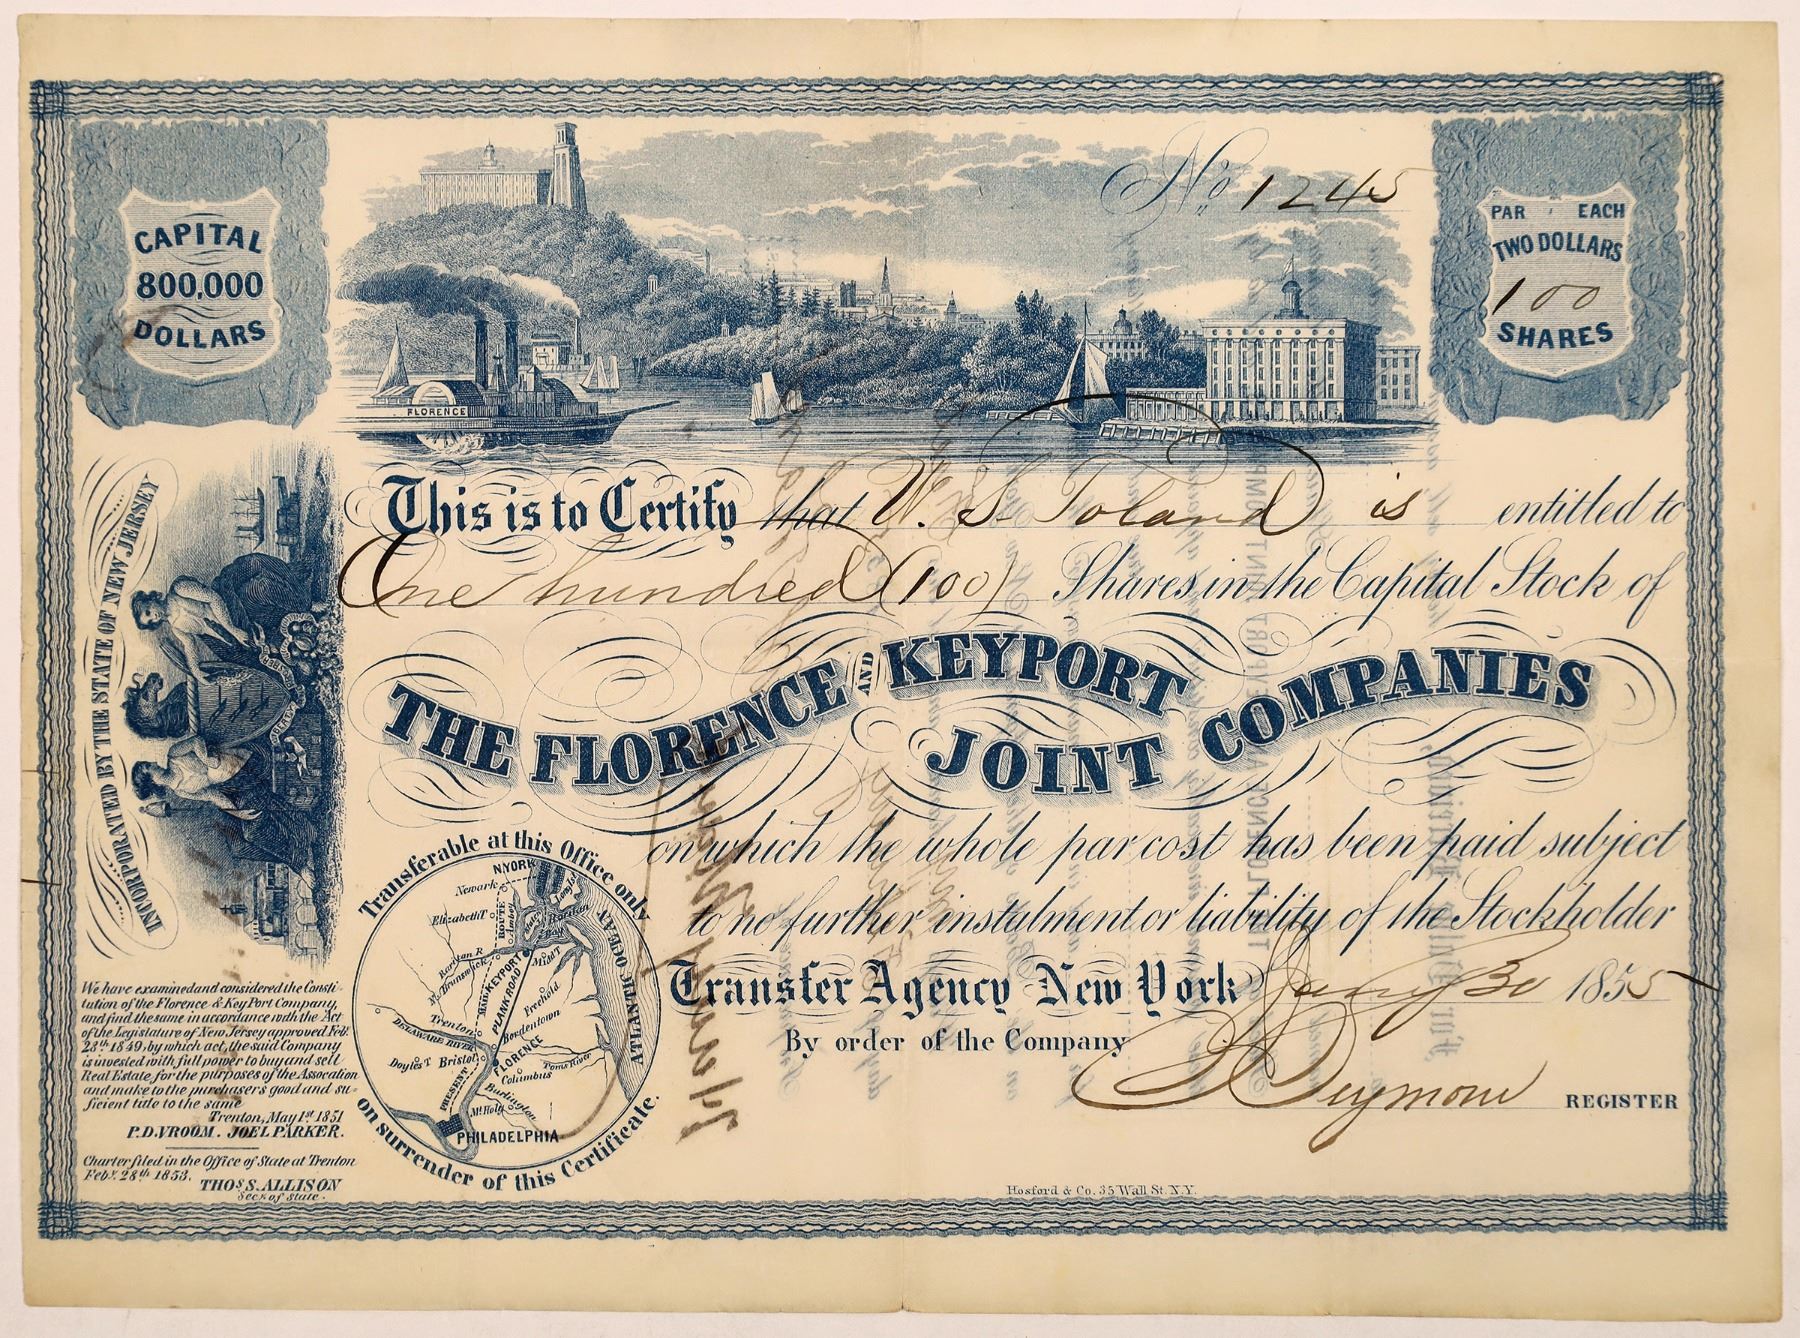 No. 1245
CAPITAL
800,000
DOLLARS
PAR EACH
TWO DOLLARS
100
SHARES
FLORENCE
This is to Certify that W. S. Toland is entitled to
One hundred (100) Shares in the Capital Stock of
THE FLORENCE AND KEYPORT
JOINT COMPANIES
on which the whole par cost has been paid subject
to no further instalment or liability of the Stockholder
Transfer Agency New York Jany 30 1855
By order of the Company
Seymour REGISTER
INCORPORATED BY THE STATE OF NEW JERSEY
We have examined and considered the Consti-
tution of the Florence & KeyPort Company,
and find the same in accordance with the Act
of the Legislature of New Jersey approved Feb.
28th 1849, by which act, the said Company
is invested with full power to buy and sell
Real Estate for the purposes of the Assocation
and make to the purchasers good and su-
ficient title to the same
Trenton, May 1st 1851
P.D. VROOM. JOEL PARKER.
Charter filed in the Office of State at Trenton
Feby. 28th 1853.
THOS S. ALLISON
Sec. of State.
Transferable at this Office only
on surrender of this Certificate.
N.YORK
Newark
Elizabeth T
ROUTE
Amboy
Raritan
BAY
Raritan R
N. Brunswick
MAIN
KEYPORT
PLANK ROAD
Midd T
Freehold
ATLANTIC OCEAN
Trenton
DELAWARE RIVER
Bordentown
Doyles T
Bristol
FLORENCE
Columbus
Toms River
PRESENT
Burlington
Mt Holly
PHILADELPHIA
Hosford & Co. 35 Wall St. N.Y.